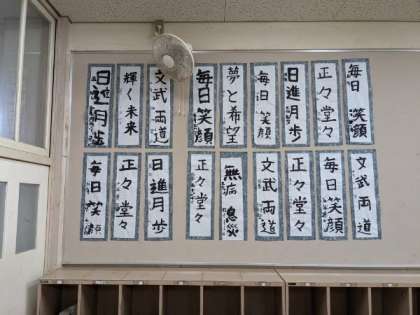 毎日笑顔
正々堂々
日進月歩
毎日笑顔
夢と希望
毎日笑顔
文武両道
輝く未来
日進月歩
文武両道
毎日笑顔
正々堂々
文武両道
無病息災
正々堂々
日進月歩
正々堂々
毎日笑顔